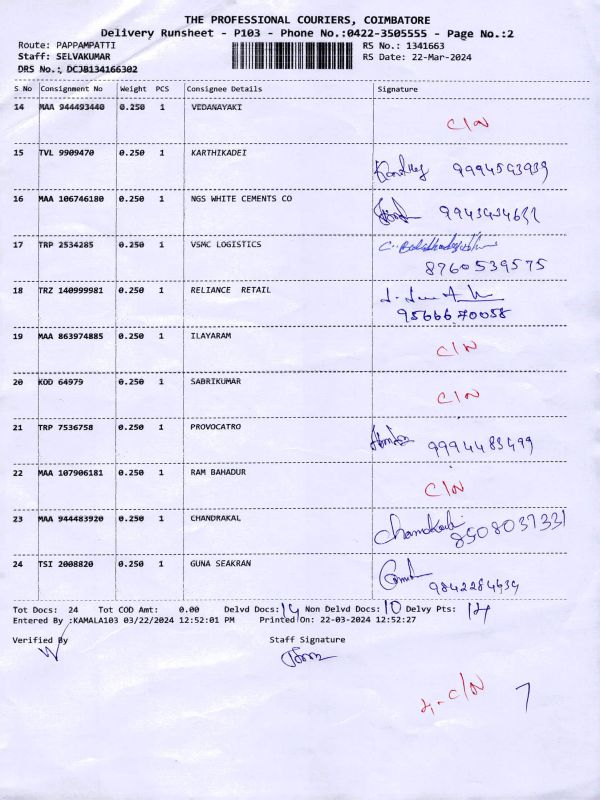 THE PROFESSIONAL COURIERS, COIMBATORE
Delivery Runsheet - P103 - Phone No.:0422-3505555 - Page No.:2
Route: PAPPAMPATTI RS No.: 1341663
Staff: SELVAKUMAR RS Date: 22-Mar-2024
DRS No.: DCJB134166302
S No Consignment No Weight PCS Consignee Details Signature
14 MAA 944493440 0.250 1 VEDANAYAKI C/N
15 TVL 9909470 0.250 1 KARTHIKADEI 9994593939
16 MAA 106746180 0.250 1 NGS WHITE CEMENTS CO
17 TRP 2534285 0.250 1 VSMC LOGISTICS
8760539575
18 TRZ 140999981 0.250 1 RELIANCE RETAIL
9566670058
19 MAA 863974885 0.250 1 ILAYARAM C/N
20 KOD 64979 0.250 1 SABRIKUMAR C/N
21 TRP 7536758 0.250 1 PROVOCATRO 9994483499
22 MAA 107906181 0.250 1 RAM BAHADUR C/N
23 MAA 944483920 0.250 1 CHANDRAKAL 8508037331
24 TSI 2008820 0.250 1 GUNA SEAKRAN
9842284639
Tot Docs: 24 Tot COD Amt: 0.00 Delvd Docs: 14 Non Delvd Docs: 10 Delvy Pts: 14
Entered By :KAMALA103 03/22/2024 12:52:01 PM Printed On: 22-03-2024 12:52:27
Verified By Staff Signature
C/N 7